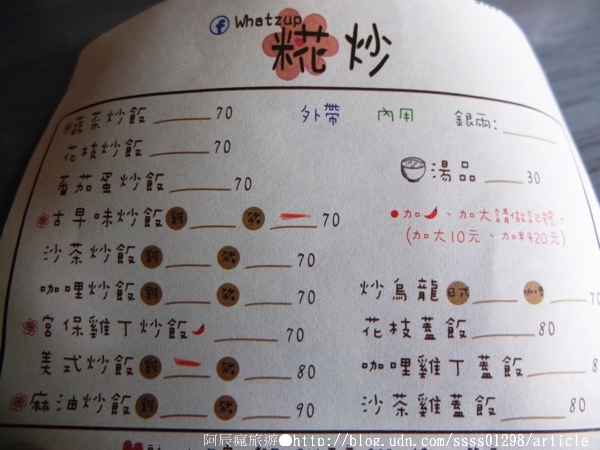 Whatzup
糀炒
蔬菜炒飯 70
外帶 內用 銀兩:
花枝炒飯 70
蕃茄蛋炒飯 70
湯品 30
古早味炒飯 雞 豬 70
●加、加大請做記號。
(加大10元、加料20元)
沙茶炒飯 雞 豬 70
咖哩炒飯 雞 豬 70
炒烏龍 日式 咖哩 70
宮保雞丁炒飯 70
花枝蓋飯 80
美式炒飯 雞 豬 80
咖哩雞丁蓋飯 8
麻油炒飯 雞 豬 90
沙茶雞蓋飯 80
阿辰瘋旅遊●http://blog.udn.com/ssss01298/article